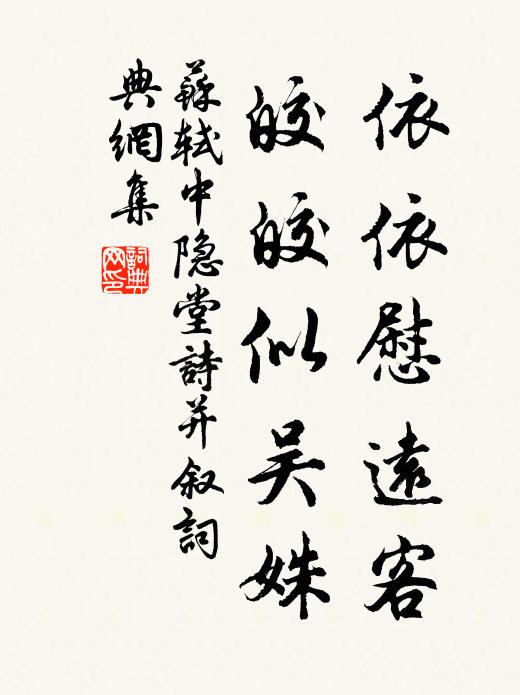 依依慰遠客
皎皎似吴姝
蘇軾中隐堂詩并叙詞
典網集
詞典
网印